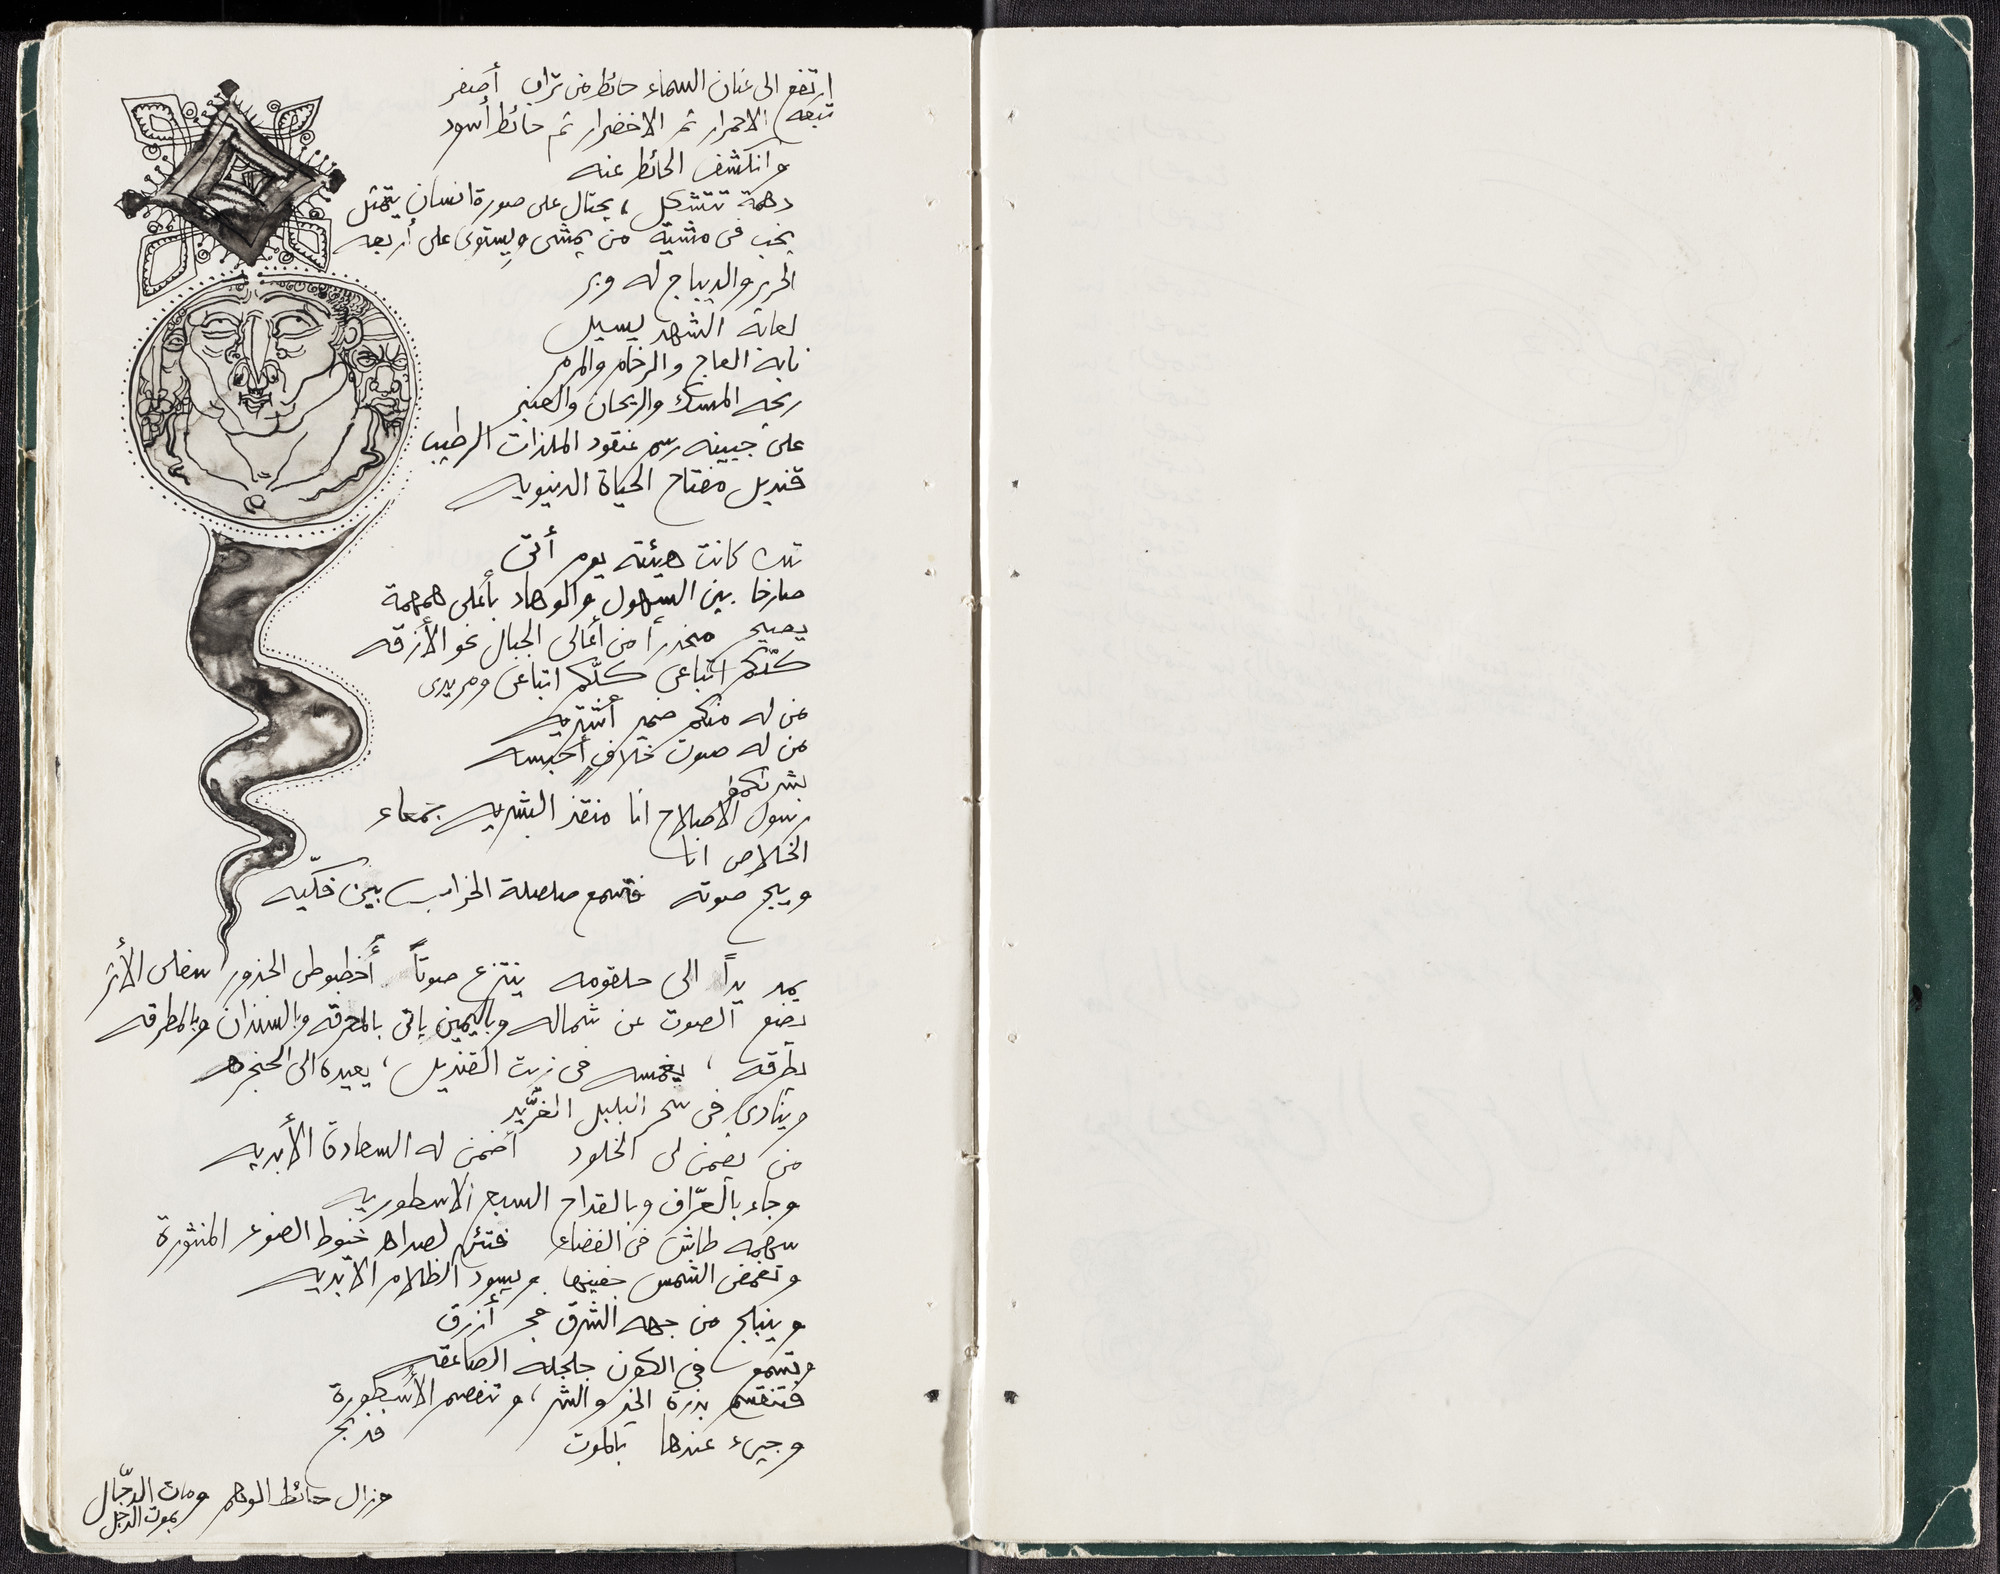 ارتفع الى عنان السماء حائط من تراب أصفر
تبعه الاحمرار ثم الاخضرار ثم حائط أسود
وانكشف الحائط عنه
وهمة تتشكل، يحتال على صورة انسان يتمثل
يخب فى مشية من يمشى ويستوى على أربعه
الحرير والديباج له وبر
لعابه الشهد يسيل
نابه العاج والرخام والمرمر
ريحه المسك والريحان والعنبر
على جبينه رسم عنقود الملذات الرطيب
قنديل مفتاح الحياة الدنيويه
تلك كانت هيئته يوم أتى
صارخا بين السهول والوهاد بأعلى همهمة
يصيح منحدرا من أعالى الجبال نحو الأزقه
كلّكم اتباعى كلّكم اتباعى ومريدى
من له منكم ضمير أشتريه
من له صوت خلافى أحبسه
بشراكمو
رسول الاصلاح انا منقذ البشريه جمعاء
الخلاص انا
ويبح صوته فتسمع صلصلة الخراب بين فكّيه
يمد يداً الى حلقومه ينتزع صوتاً أخطبوطى الجذور الأثر
يضع الصوت عن شماله وباليمين يأتى بالمحرقه وبالسندان وبالمطرقه
يطرقه ، يغمسه فى زيت القنديل ، يعيده الى الحنجره
وينادى فى سحر البلبل الغرّيد
من يضمن لى الخلود أضمن له السعادة الأبديه
وجاء بالعرّاف وبالقداح السبع الاسطوريه
سهمه طاش فى الفضاء فتئن لصداه خيوط الضوء المنثورة
وتغمض الشمس جفنيها ويسود الظلام الأبديه
وينبلج من جهه الشرق فجر أزرق
ويسمع فى الكون جلجله الصاعقه
فتنقسم بذرة الخير والشر ، وتنفصم الأسطورة
وجيء عندها بالموت فذبح
وزال حائط الوهم ومات الدجّال
بموت الدجل